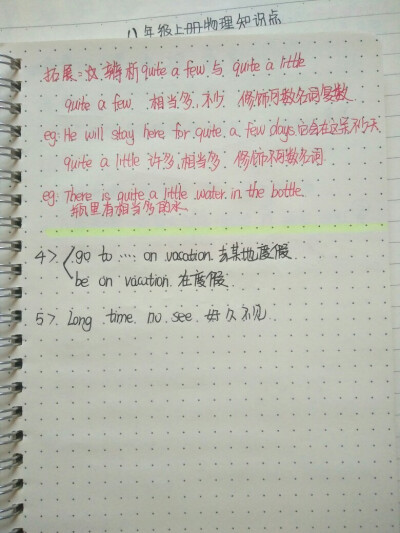 八年级上册物理知识点
拓展:次 辨析quite a few 与 quite a little
quite a few 相当多,不少 修饰可数名词复数
eg: He will stay here for quite a few days 他会在这呆不少天
quite a little 许多,相当多 修饰不可数名词
eg: There is quite a little water in the bottle.
瓶里有相当多的水
4>. go to .... on vacation 去某地度假
be on vacation 在度假
5>. Long time no see 好久不见